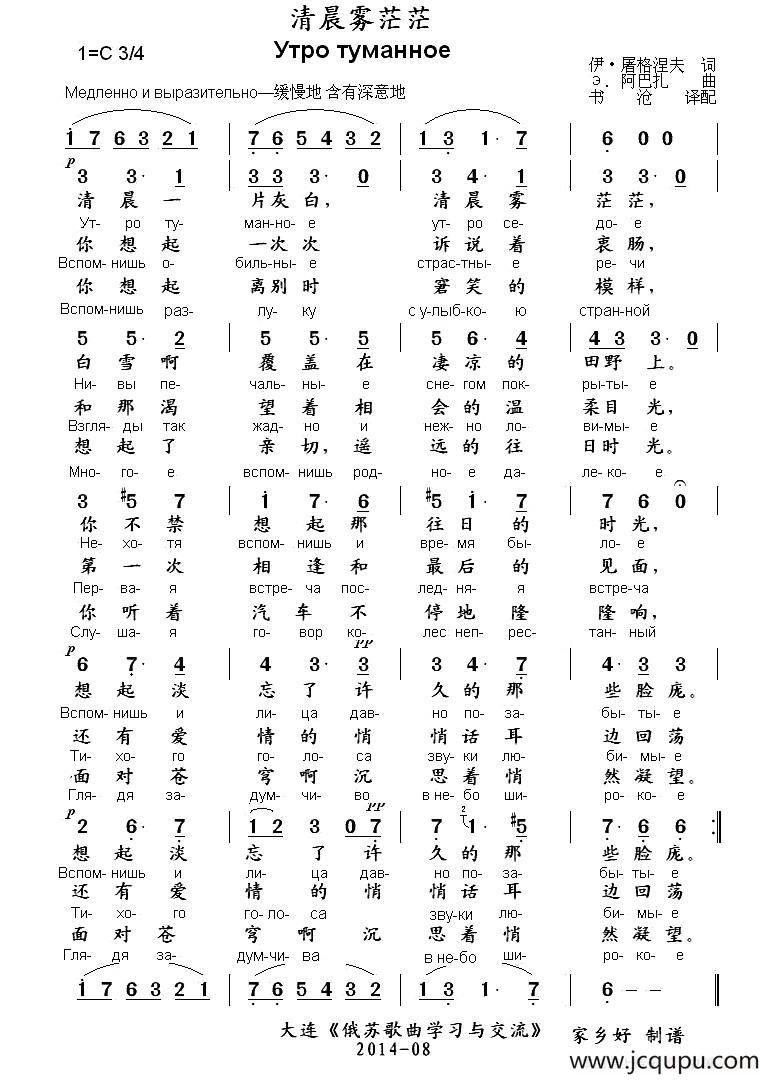 清晨雾茫茫
Утро туманное
1=C 3/4
伊·屠格涅夫 词
Э. 阿巴扎 曲
书沧 译配
Медленно и выразительно—缓慢地 含有深意地
i 7 6 3 2 1 | 7 6 5 4 3 2 | 1 3 1· 7 | 6 0 0 |
p
3 3· 1 | 3 3 3· 0 | 3 4· 1 | 3 3· 0 |
清 晨 一 片灰白, 清 晨 雾 茫 茫,
Ут- ро ту- ман-но- е ут- ро се- до- е
你 想 起 一次次 诉 说 着 衷 肠,
Вспом-нишь о- биль-ны- е страс-тны- е ре- чи
你 想 起 离别时 窘 笑 的 模 样,
Вспом-нишь раз- лу- ку с у-лыб-ко- ю стран-ной
5 5· 2 | 5 5· 5 | 5 6· 4 | 4 3 3· 0 |
白 雪 啊 覆 盖 在 凄 凉 的 田 野 上。
Ни- вы пе- чаль- ны- е сне- гом пок- ры-ты- е
和 那 渴 望 着 相 会 的 温 柔目 光,
Взгля- ды так жад- но и неж-но ло- ви-мы- е
想 起 了 亲 切, 遥 远 的 往 日时 光。
Мно- го- е вспом- нишь род- но- е да- ле- ко- е
3 #5 7 | i 7· 6 | #5 i· 7 | 7 6 0 |
你 不 禁 想 起 那 往 日 的 时 光,
Не- хо- тя вспом- нишь и вре- мя бы- ло- е
第 一 次 相 逢 和 最 后 的 见 面,
Пер- ва- я встре- ча пос- лед- ня- я встре-ча
你 听 着 汽 车 不 停 地 隆 隆 响,
Слу- ша- я го- вор ко- лес неп-рес- тан- ный
p pp
6 7· 4 | 4 3· 3 | 3 4· 7 | 4· 3 3 |
想 起 淡 忘 了 许 久 的 那 些 脸 庞。
Вспом- нишь и ли- ца дав- но по- за- бы- ты- е
还 有 爱 情 的 悄 悄 话 耳 边 回 荡
Ти- хо- го го- ло- са зву- ки лю- би- мы- е
面 对 苍 穹 啊 沉 思 着 悄 然 凝 望。
Гля- дя за- дум- чи- во в не- бо ши- ро- ко- е
p pp
2 6· 7 | 1 2 3 0 7 | 7 1· #5 | 7· 6 6 :‖
想 起 淡 忘 了 许 久 的 那 些 脸 庞。
Вспом- нишь и ли- ца дав- но по- за- бы- ты- е
还 有 爱 情 的 悄 悄 话 耳 边 回 荡
Ти- хо- го го- ло- са зву-ки лю- би- мы- е
面 对 苍 穹 啊 沉 思 着 悄 然 凝 望。
Гля- дя за- дум-чи- ва в не- бо ши- ро- ко- е
i 7 6 3 2 1 | 7 6 5 4 3 2 | 1 3 1· 7 | 6 – – ‖
大连《俄苏歌曲学习与交流》 家乡好 制谱
2014-08
www.jcqupu.com